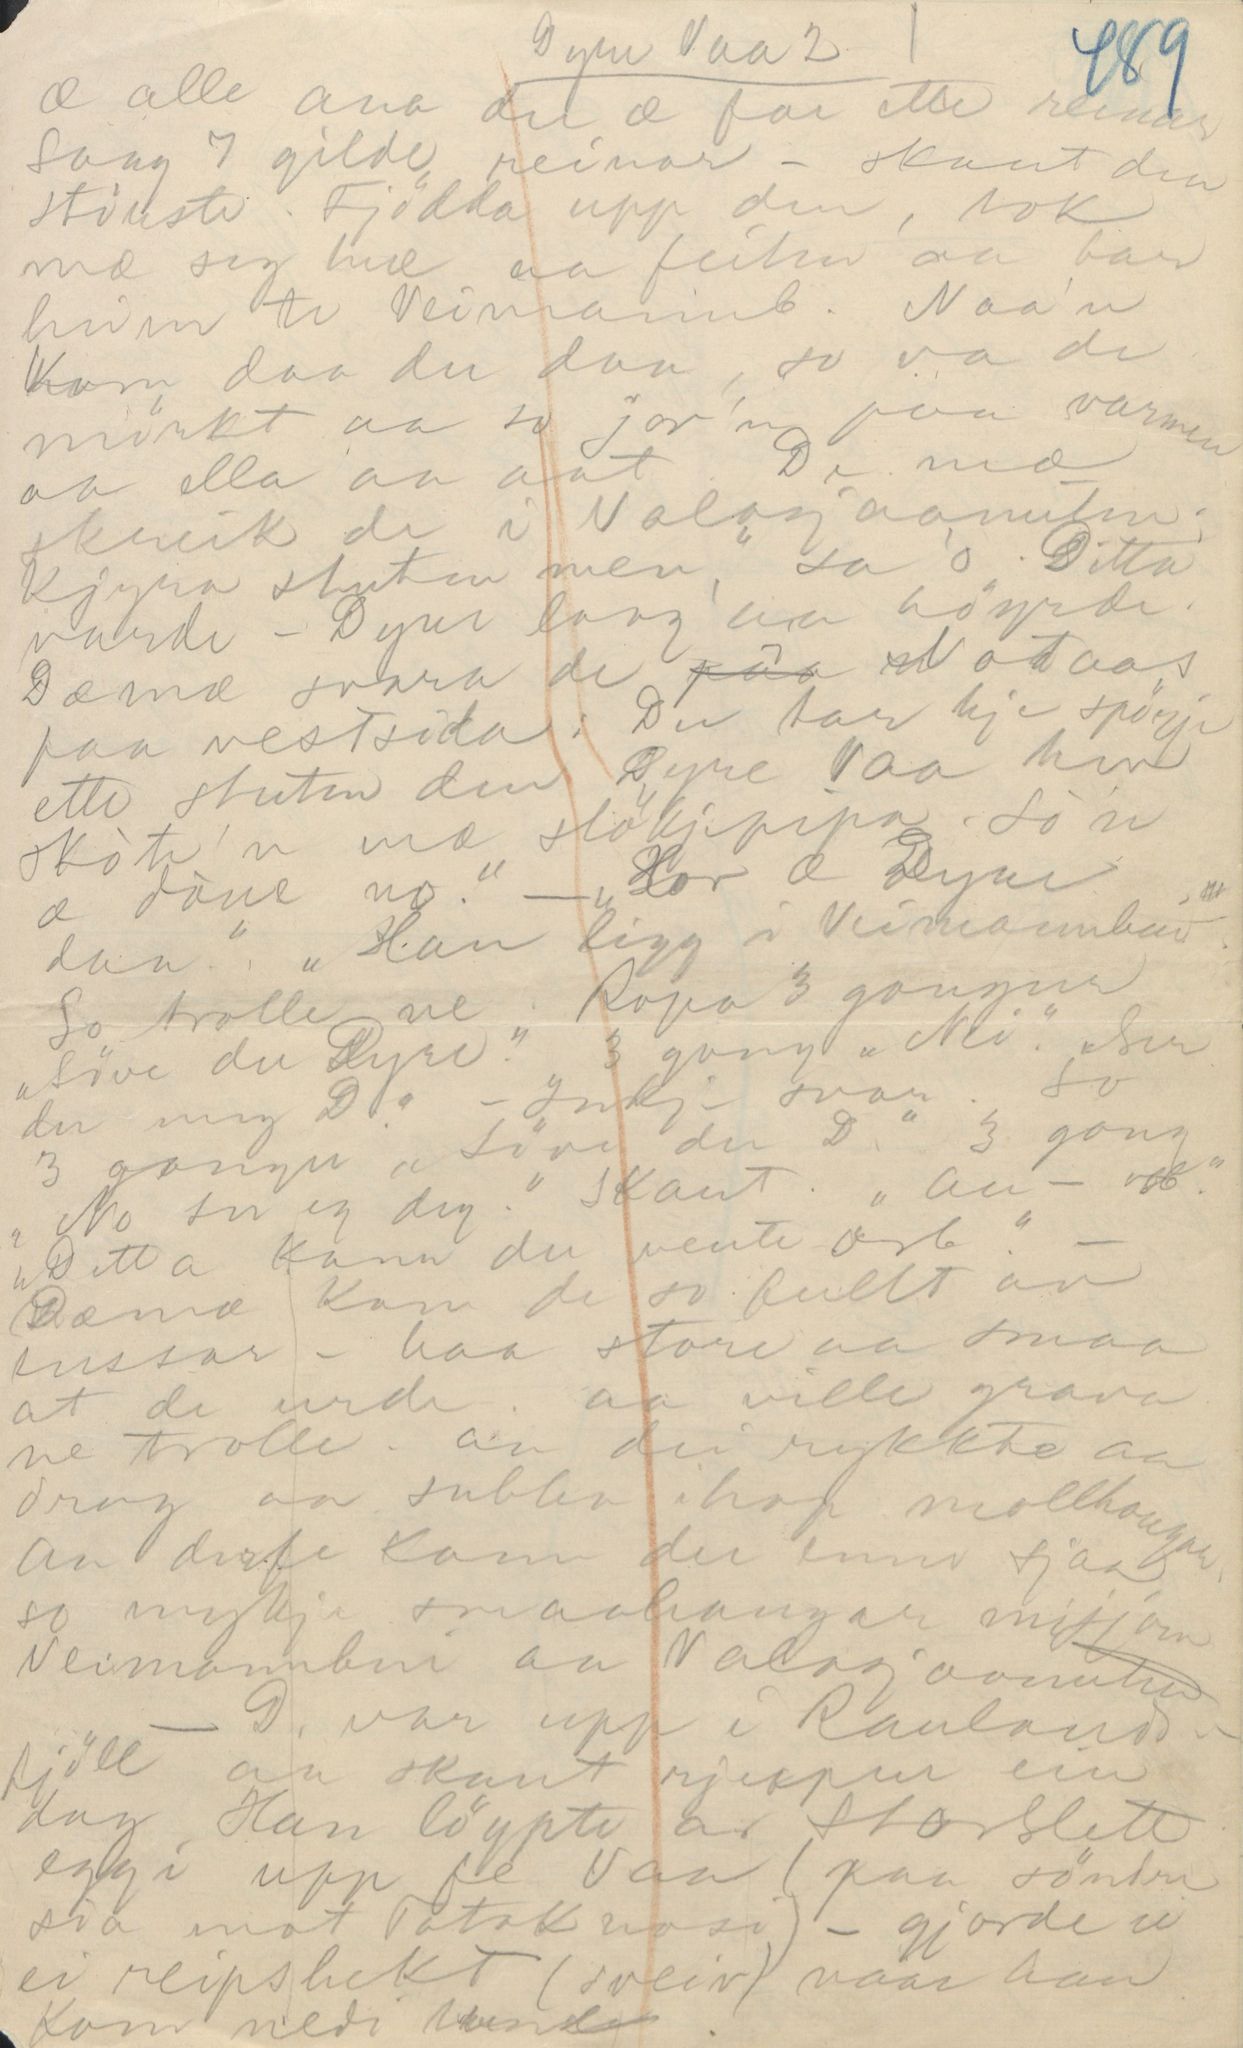 Dyre Vaa 2 489
æ alle ana du æ for ette reinar
Saag 7 gilde reinar – skaut den
störste. Fjödda upp den, tok
mæ seg hue aa feiten aa bar
heim te Veimannb. Naa'n
kom daa du daa, so va de
mörkt aa so jor'n paa varmen
aa ella aa aat. De mæ
skreik de i Valasjaanuten:
Kjyra stuten men," sa 'o. Ditta
varde – Dyre laag aa höyrde.
Dæmæ svara de paa Notaas
paa vestsida: Du tar kje spörje
ette stuten den Dyre Vaa hev
sköte'n mæ slökjepipa. So'n
æ döue no." – „Hor æ Dyre
daa." „Han ligg i Veimannbui."
So trolle ne. Ropa 3 gongur
„Söve du Dyre." 3 gong „Nei." „Ser
du meg D." – Inkje svar. So
3 gongur „Söve du D." 3 gong
„No ser eg deg." Skaut. „Au –
„Ditta kann du vente
Dæmæ kom de so fullt av
tussar – baa store aa smaa
at de urde. aa ville grava
ne trolle. aa dei rykkte aa
drog aa subba ihop mollhaugar.
Aa derfe kann du enno sjaa
so mykje smaahaugar misjom
Veimannbui aa Valasjaanuten
– D. var upp i Raulands-
fjöll aa skaut rjupur ein
dag. Han löypte av Storslett
eggi upp fe Vaa (paa söndre
sia mot Totaknosi) – gjorde
ei reipslukt (sveiv) naar han
kom nedi